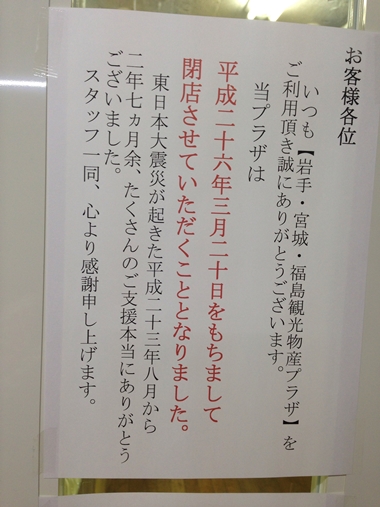 お客様各位
いつも【岩手・宮城・福島観光物産プラザ】を
ご利用頂き誠にありがとうございます。
当プラザは
平成二十六年三月二十日をもちまして
閉店させていただくこととなりました。
東日本大震災が起きた平成二十三年八月から
二年七ヵ月余、たくさんのご支援本当にありがとう
ございました。
スタッフ一同、心より感謝申し上げます。